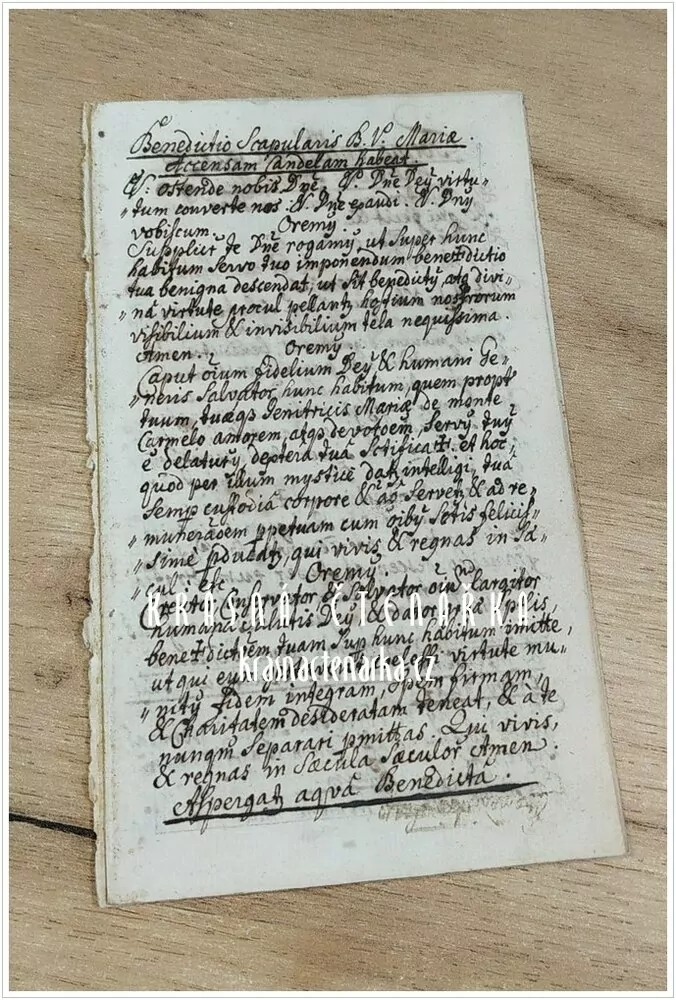 Benedictio Scapularis B. V. Mariæ.
Accensam Candelam habeat.
V: ostende nobis Dnē. V. Dnē Dey virtu-
„tum converte nos. V. Dnē exaudi. V. Dny
vobiscum. Oremy.
Supplicr te Dnē rogamy, ut super hunc
habitum servo tuo imponendum bene✝dictio
tua benigna descendat, ut sit benedicty, atq divi-
„nâ virtute procul pellantr hostium nostrorum
visibilium & invisibilium tela nequissima.
Amen. Oremy.
Caput oīum fidelium Dey & humani Ge-
„neris Salvator hunc habitum, quem propt
tuum, tuæqȝ Genitricis Mariæ de monte
Carmelo amorem, atqȝ devotoem, Servy tuy
ē delatury, dextera tuâ Sctifica✝: et hoc,
quod per illum mysticè datr intelligi, tuâ
semp custodiâ corpore & aō servetr & ad re-
„munerãoem ppetuam cum oīby Sctis felicis-
„simè pducatr, qui vivis & regnas in Sæ-
cul: etc Oremy.
Creator, Conservator & Salvator oīum largitor
humanæ salutis Dey & dator
bene✝dictoem tuam sup hunc habitum imitte,
ut qui eum virtute mu-
„nity fidem integram, Spem firmam,
& Charitatem desideratam teneat, & à te
nunqm separari pmittas. Qui vivis,
& regnas in Sæcula Sæculor Amen.
Aspergatr aqvâ Benedictâ.
KRÁSNÁ ČTENÁŘKA
krasnactenarka.cz